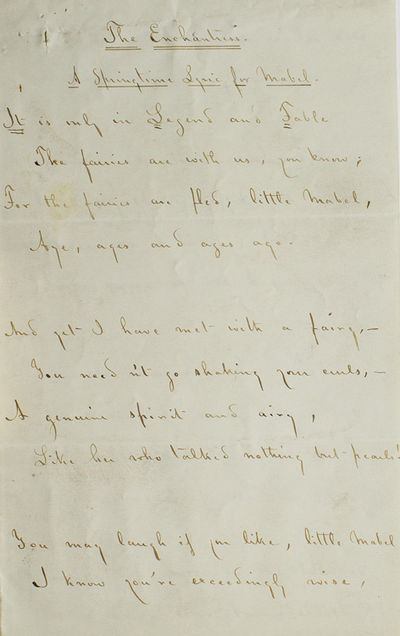 The Enchantress.
A Springtime Lyric for Mabel.
It is only in Legend and Fable
The fairies are with us, you know;
For the fairies are fled, little Mabel,
Aye, ages and ages ago.
And yet I have met with a fairy,—
You need n't go shaking your curls,—
A genuine spirit and airy,
Like her who talked nothing but pearls!
You may laugh if you like, little Mabel
I know you're exceedingly wise,